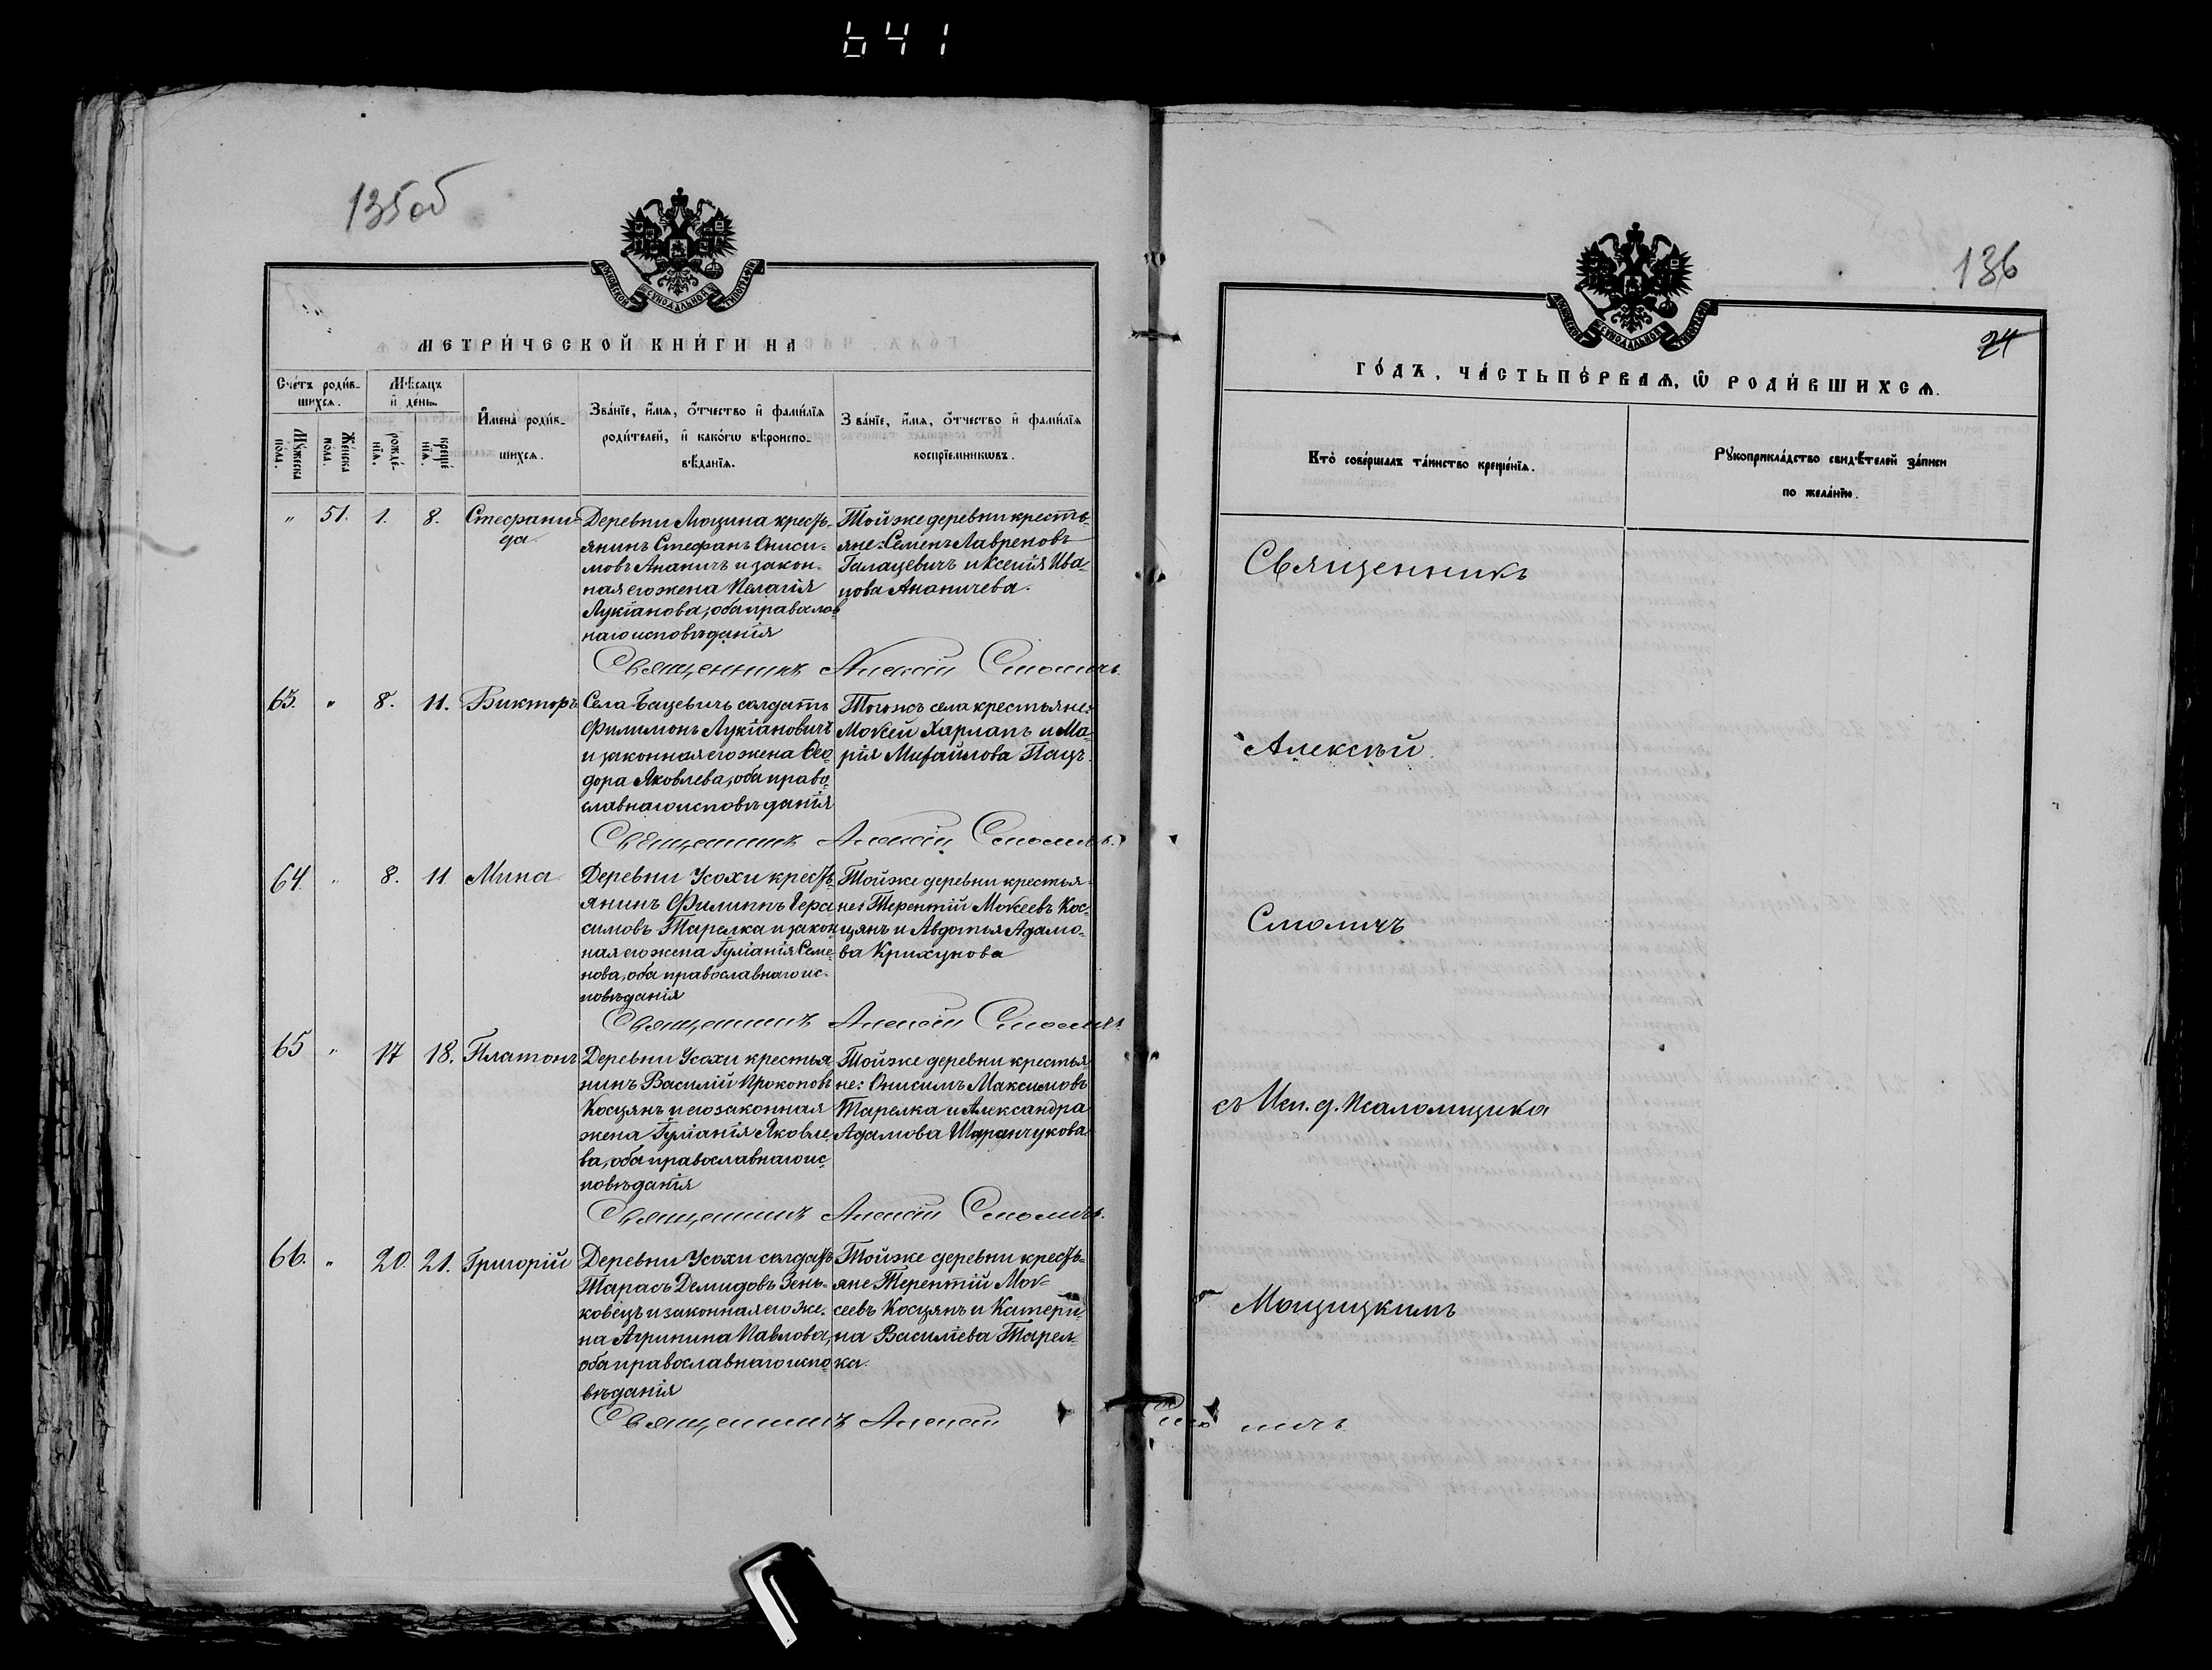 641
135об
МЕТРИЧЕСКОЙ КНИГИ НА
Счетъ родив-
шихся.
Мѣсяцъ
и день.
Имена родив-
шихся.
Званіе, имя, отчество и фамилія
родителей, и какогѡ вѣроиспо-
вѣданія.
Званіе, имя, отчество и фамилія
воспріемникѡвъ.
Мужеска
пола.
Женска
пола.
рожде-
нія.
креще
нія.
„ 51. 1. 8. Стефани-
да
Деревни Мощина кресть-
янинъ Стефанъ Ониси-
мовъ Ананичъ и закон-
ная его жена Пелагія
Лукіанова, оба православ
наго исповѣданія
Той же деревни кресть-
яне: Семенъ Лавреновъ
Галацевичъ и Ксенія Ива-
нова Ананичева.
Священникъ Алексій Смоличъ.
63. „ 8. 11. Викторъ
Села Бацевичъ солдатъ
Филимонъ Лукіановичъ
и законная его жена Ѳео-
дора Яковлева, оба право-
славнаго исповѣданія
Того же села крестьяне:
Мокей Харлапъ и Ма-
рія Михайлова Пацъ.
Священникъ Алексій Смоличъ.
64 „ 8. 11 Мина
Деревни Усохи кресть-
янинъ Филиппъ Гера
симовъ Тарелка и закон
ная его жена Гуліанія Семе-
нова, оба православнаго ис-
повѣданія
Той же деревни крестья-
не: Терентій Мокеевъ Кос-
цянъ и Авдотья Адамо-
ва Крихунова
Священникъ Алексій Смоличъ
65 „ 17 18. Платонъ
Деревни Усохи крестья
нинъ Василій Прокоповъ
Косцянъ и его законная
жена Гуліанія Яковле-
ва, оба православнаго ис-
повѣданія
Той же деревни крестья
не: Онисимъ Максимовъ
Тарелка и Александра
Адамова Шаранчукова
Священникъ Алексій Смоличъ.
66. „ 20. 21. Григорій
Деревни Усохи солдатъ
Тарасъ Демидовъ Зень-
ковецъ и законная его же-
на Агрипина Павлова,
оба православнаго испо
вѣданія
Той же деревни кресть-
яне Терентій Мок-
сеевъ Косцянъ и Катери-
на Василіева Тарел-
ка.
Священникъ Алексій Смоличъ.
136
24
ГОДЪ, ЧАСТЬ ПЕРВАЯ, Ѡ РОДИВШИХСЯ.
Кто совершалъ таинство крещенія.
Рукоприкладство свидѣтелей записи
по желанію.
Священникъ
Алексѣй
Смоличъ
съ Исп. д. Псаломщика
Мощицкимъ